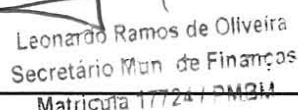 Leonardo Ramos de Oliveira
Secretário Mun de Finanças
Matricula 17724 / PMBM